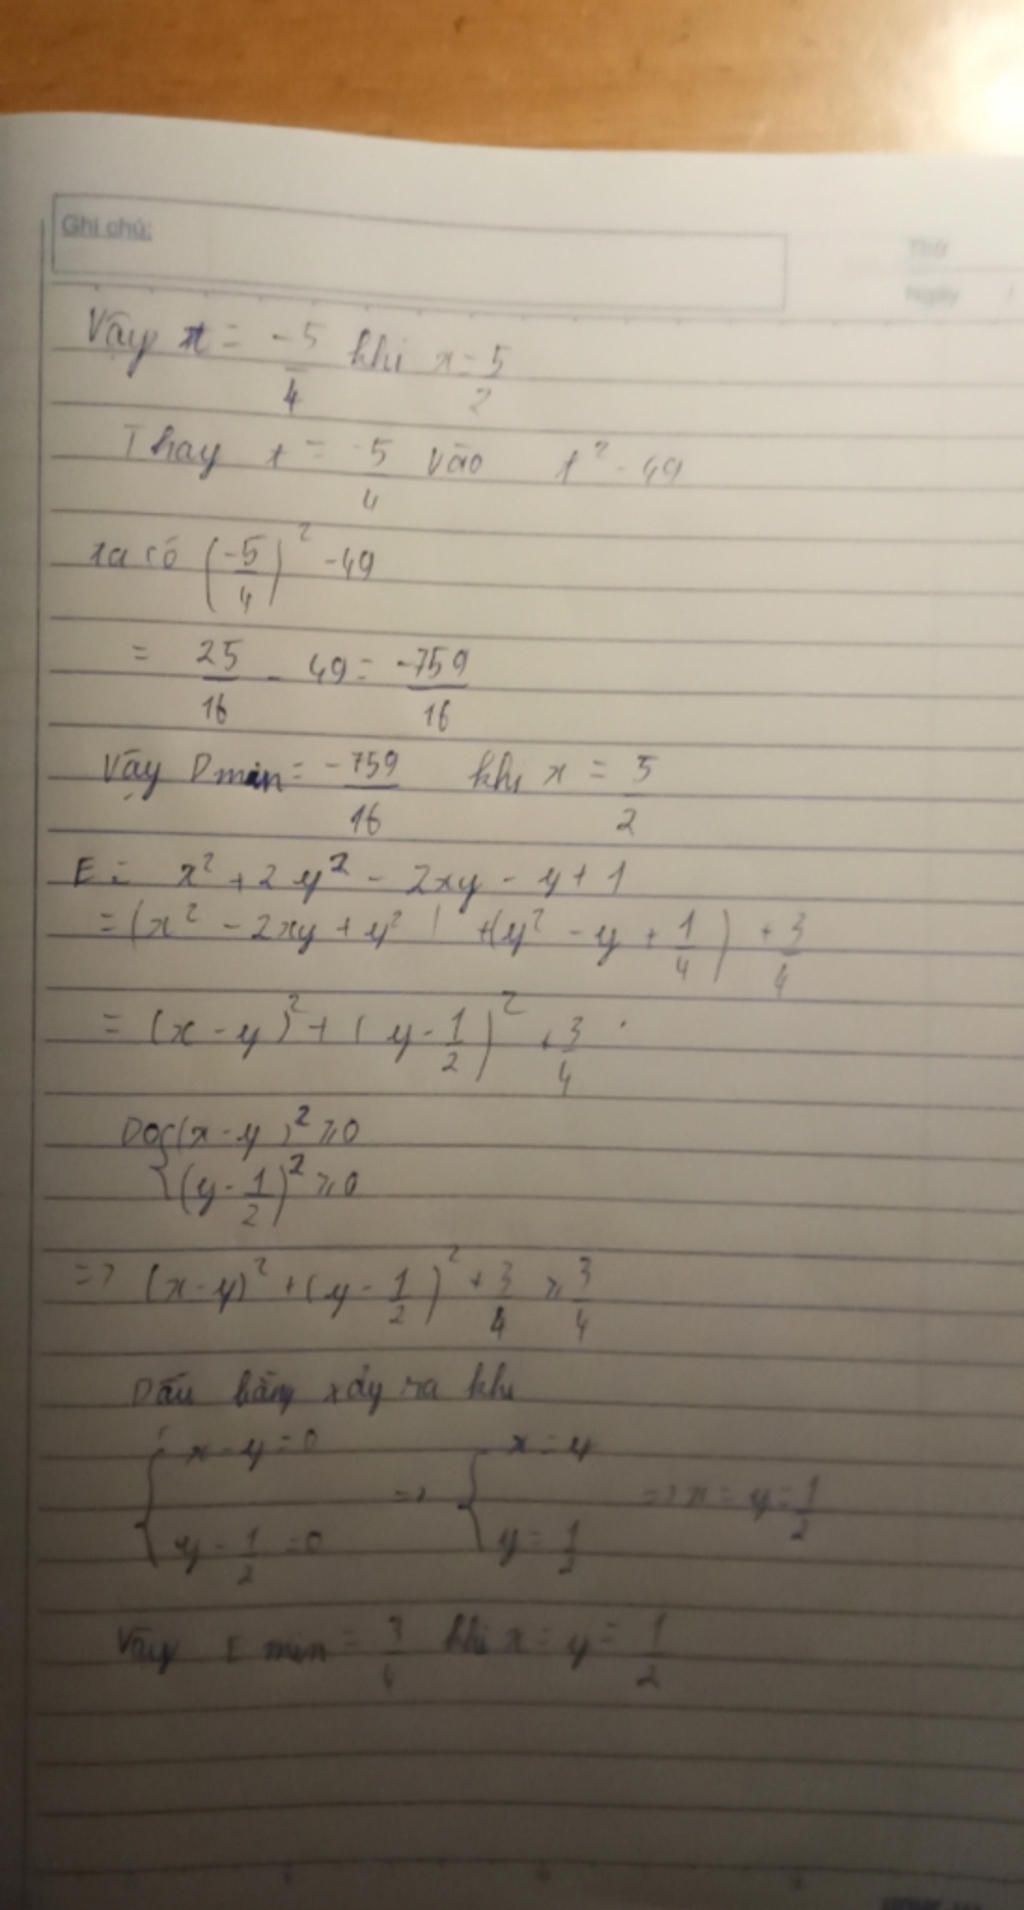 Ghi chú:
Thứ
Ngày
Vậy t = -5/4 khi x = 5/2
Thay t = -5/4 vào t² - 49
ta có (-5/4)² - 49
= 25/16 - 49 = -759/16
Vậy Dmin = -759/16 khi x = 5/2
E = x² + 2y² - 2xy - y + 1
= (x² - 2xy + y²) + (y² - y + 1/4) + 3/4
= (x - y)² + (y - 1/2)² + 3/4
Do { (x - y)² ≥ 0
(y - 1/2)² ≥ 0
=> (x - y)² + (y - 1/2)² + 3/4 ≥ 3/4
Dấu bằng xảy ra khi
{ x - y = 0 => { x = y => x = y = 1/2
y - 1/2 = 0 y = 1/2
Vậy E min = 3/4 khi x = y = 1/2